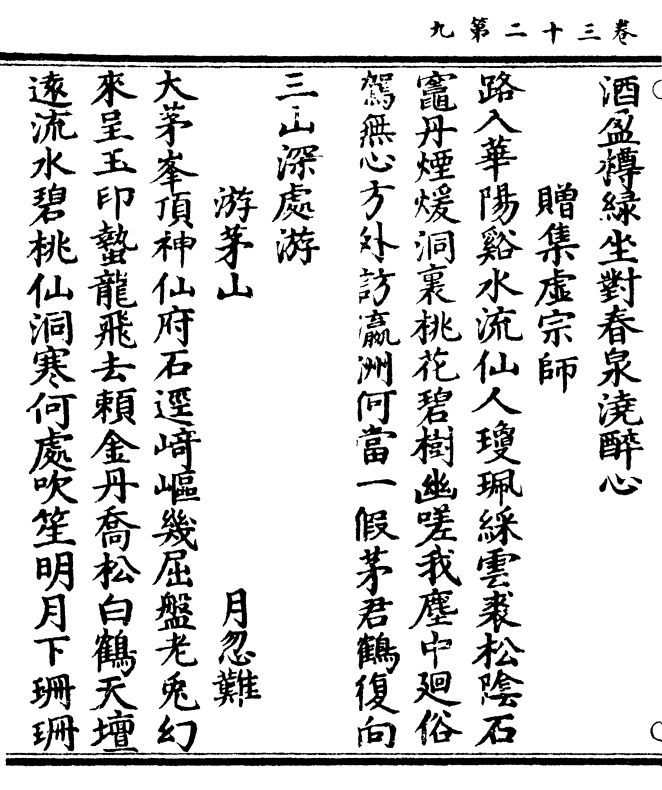 卷三十二第九
酒盈樽綠坐對春泉澆醉心
贈集虛宗師
路入華陽谿水流仙人瓊珮綵雲裘松陰石
竈丹煙煖洞裏桃花碧樹幽嗟我塵中廻俗
駕無心方外訪瀛洲何當一假茅君鶴復向
三山深處游
游茅山
月忽難
大茅峯頂神仙府石逕崎嶇幾屈盤老兎幻
來呈玉印蟄龍飛去賴金丹喬松白鶴天壇
遠流水碧桃仙洞寒何處吹笙明月下珊珊